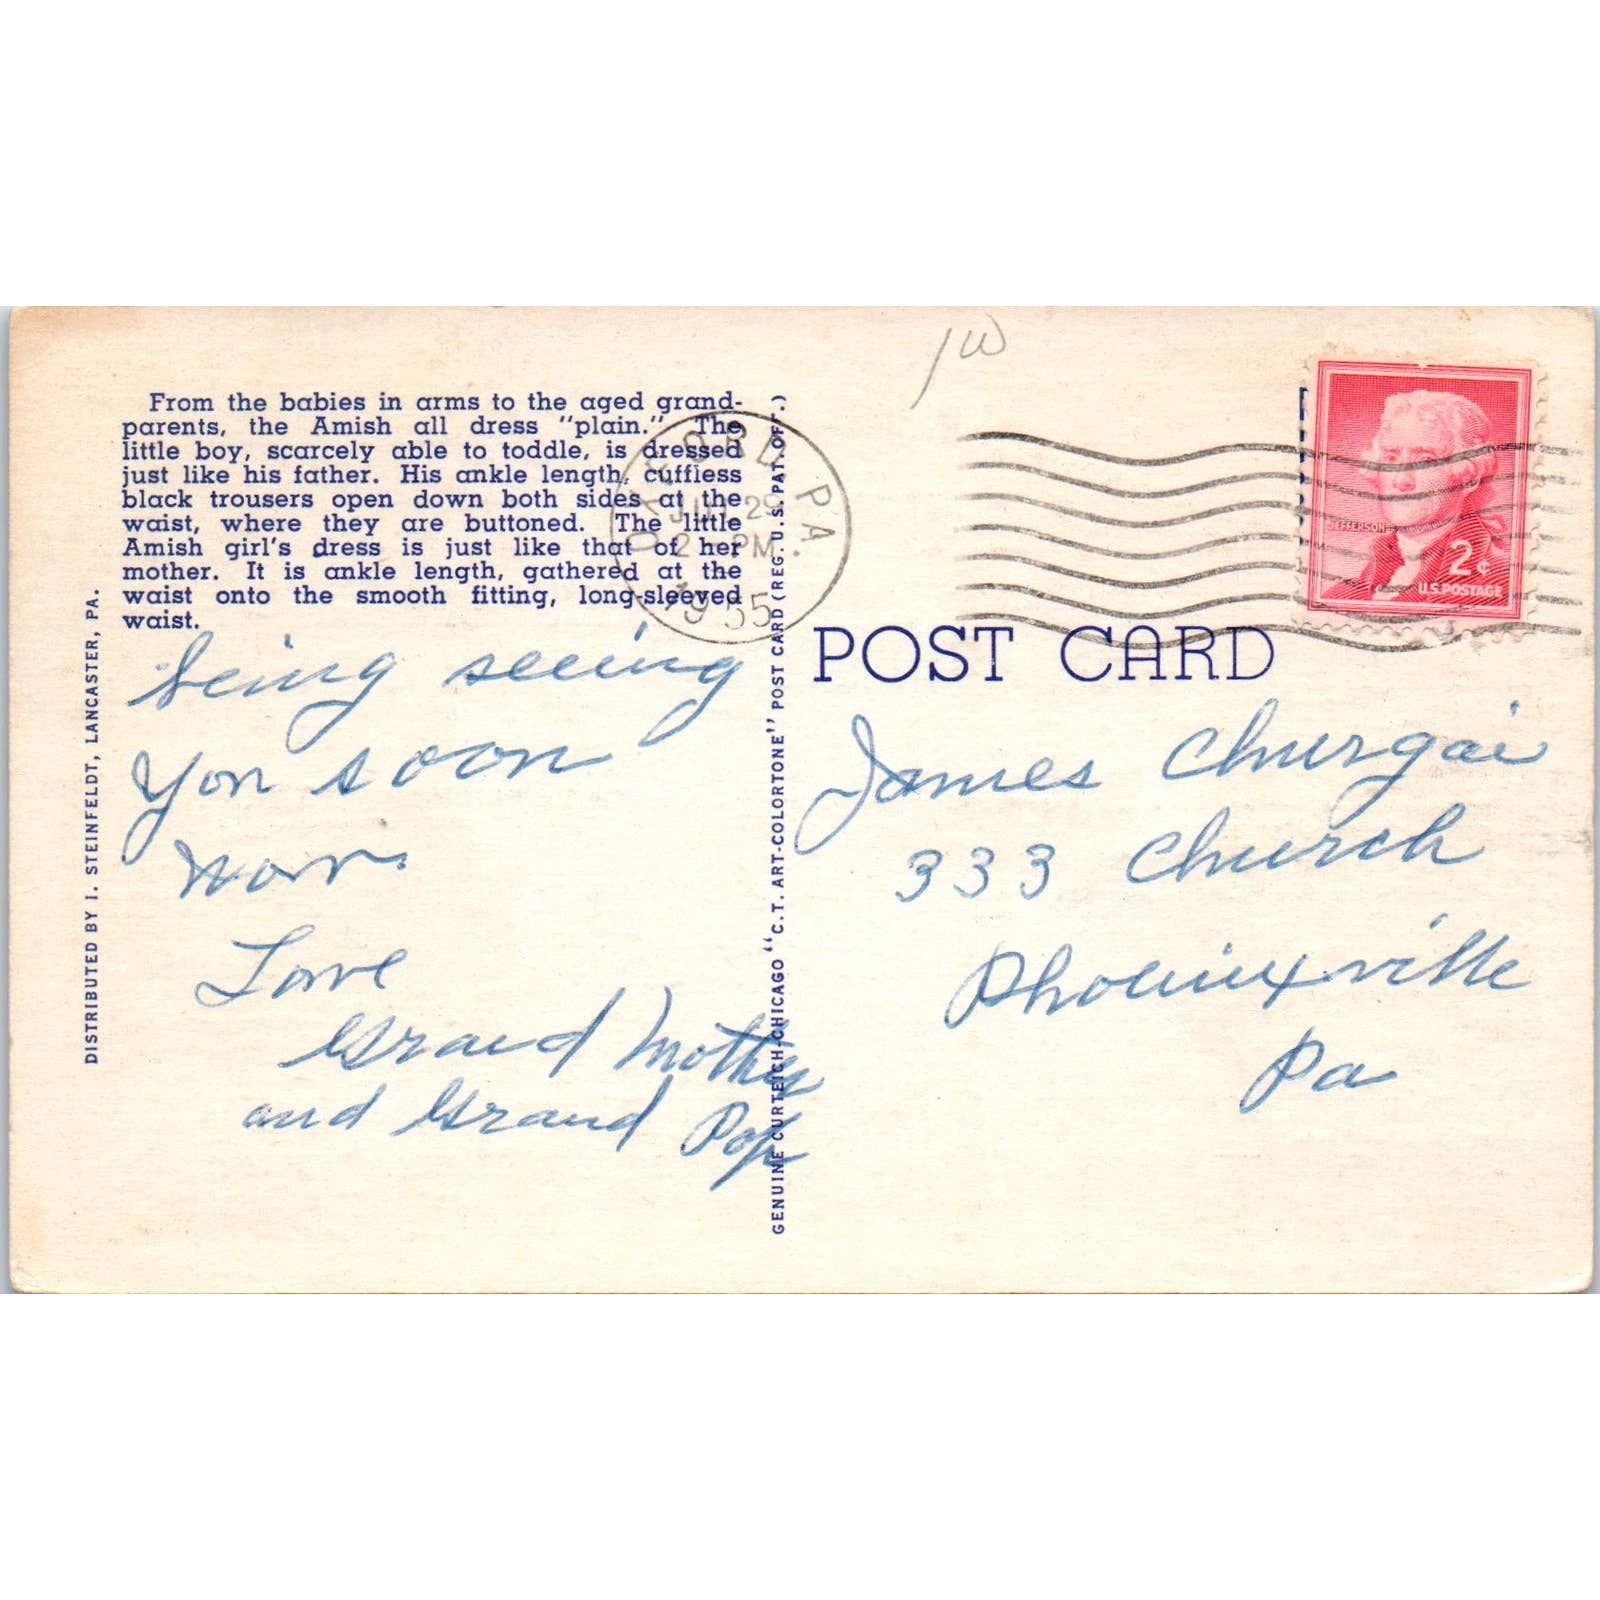 From the babies in arms to the aged grand-
parents, the Amish all dress "plain." The
little boy, scarcely able to toddle, is dressed
just like his father. His ankle length, cuffless
black trousers open down both sides at the
waist, where they are buttoned. The little
Amish girl's dress is just like that of her
mother. It is ankle length, gathered at the
waist onto the smooth fitting, long-sleeved
waist.
being seeing
you soon
now.
Love
Grand Mother
and Grand Pop
DISTRIBUTED BY I. STEINFELDT, LANCASTER, PA.
GENUINE CURTEICH-CHICAGO "C.T. ART-COLORTONE" POST CARD (REG. U.S. PAT. OFF.)
OXFORD PA.
29
2 - PM
1955
JEFFERSON
2¢
U.S. POSTAGE
POST CARD
James Churgai
333 Church
Phoenixville
Pa